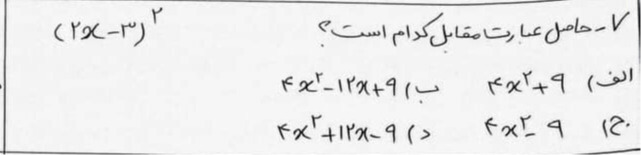 ۷- حاصل عبارت مقابل کدام است؟ (۲x-۳)^۲
الف) ۴x^۲+۹ ب) ۴x^۲-۱۲x+۹
ج) ۴x^۲-۹ د) ۴x^۲+۱۲x-۹